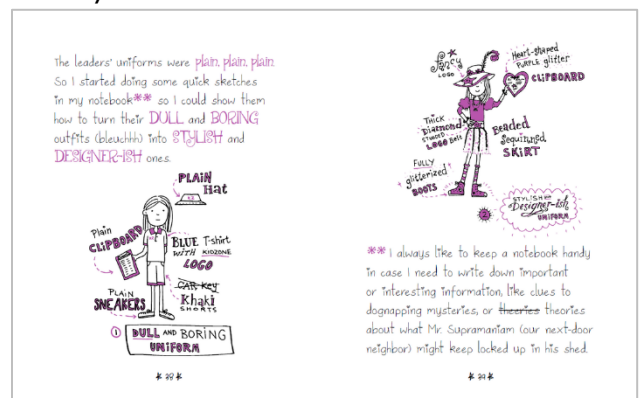 The leaders' uniforms were plain, plain, plain.
So I started doing some quick sketches
in my notebook** so I could show them
how to turn their DULL and BORING
outfits (bleuchhh) into STYLISH and
DESIGNER-ISH ones.
PLAIN
Hat
Plain
CLIPBOARD
BLUE T-shirt
WITH KIDZONE
LOGO
CAR Key
Khaki
SHORTS
PLAIN
SNEAKERS
① DULL AND BORING
UNIFORM
* 38 *
fancy
LOGO
Heart-shaped
PURPLE glitter
CLIPBOARD
THICK
Diamond
STUDDED
LOGO Belt
Beaded
Sequinned
SKIRT
FULLY
glitterized
BOOTS
②
STYLISH
Designer-ish
UNIFORM
** I always like to keep a notebook handy
in case I need to write down important
or interesting information, like clues to
dognapping mysteries, or theeries theories
about what Mr. Supramaniam (our next-door
neighbor) might keep locked up in his shed.
* 39 *